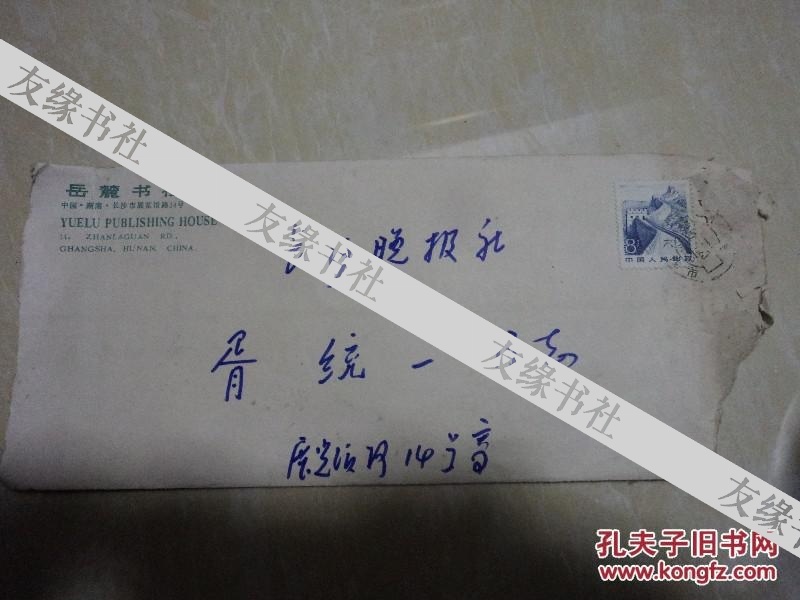 友缘书社
岳麓书社
中国·湖南·长沙市展览馆路14号
YUELU PUBLISHING HOUSE
14, ZHANLAGUAN RD.,
CHANGSHA, HUNAN, CHINA.
8
中国人民邮政
市
晚报社
友缘书社
胥统一
友缘书社
展览馆路14号高
友缘书社
孔夫子旧书网
www.kongfz.com